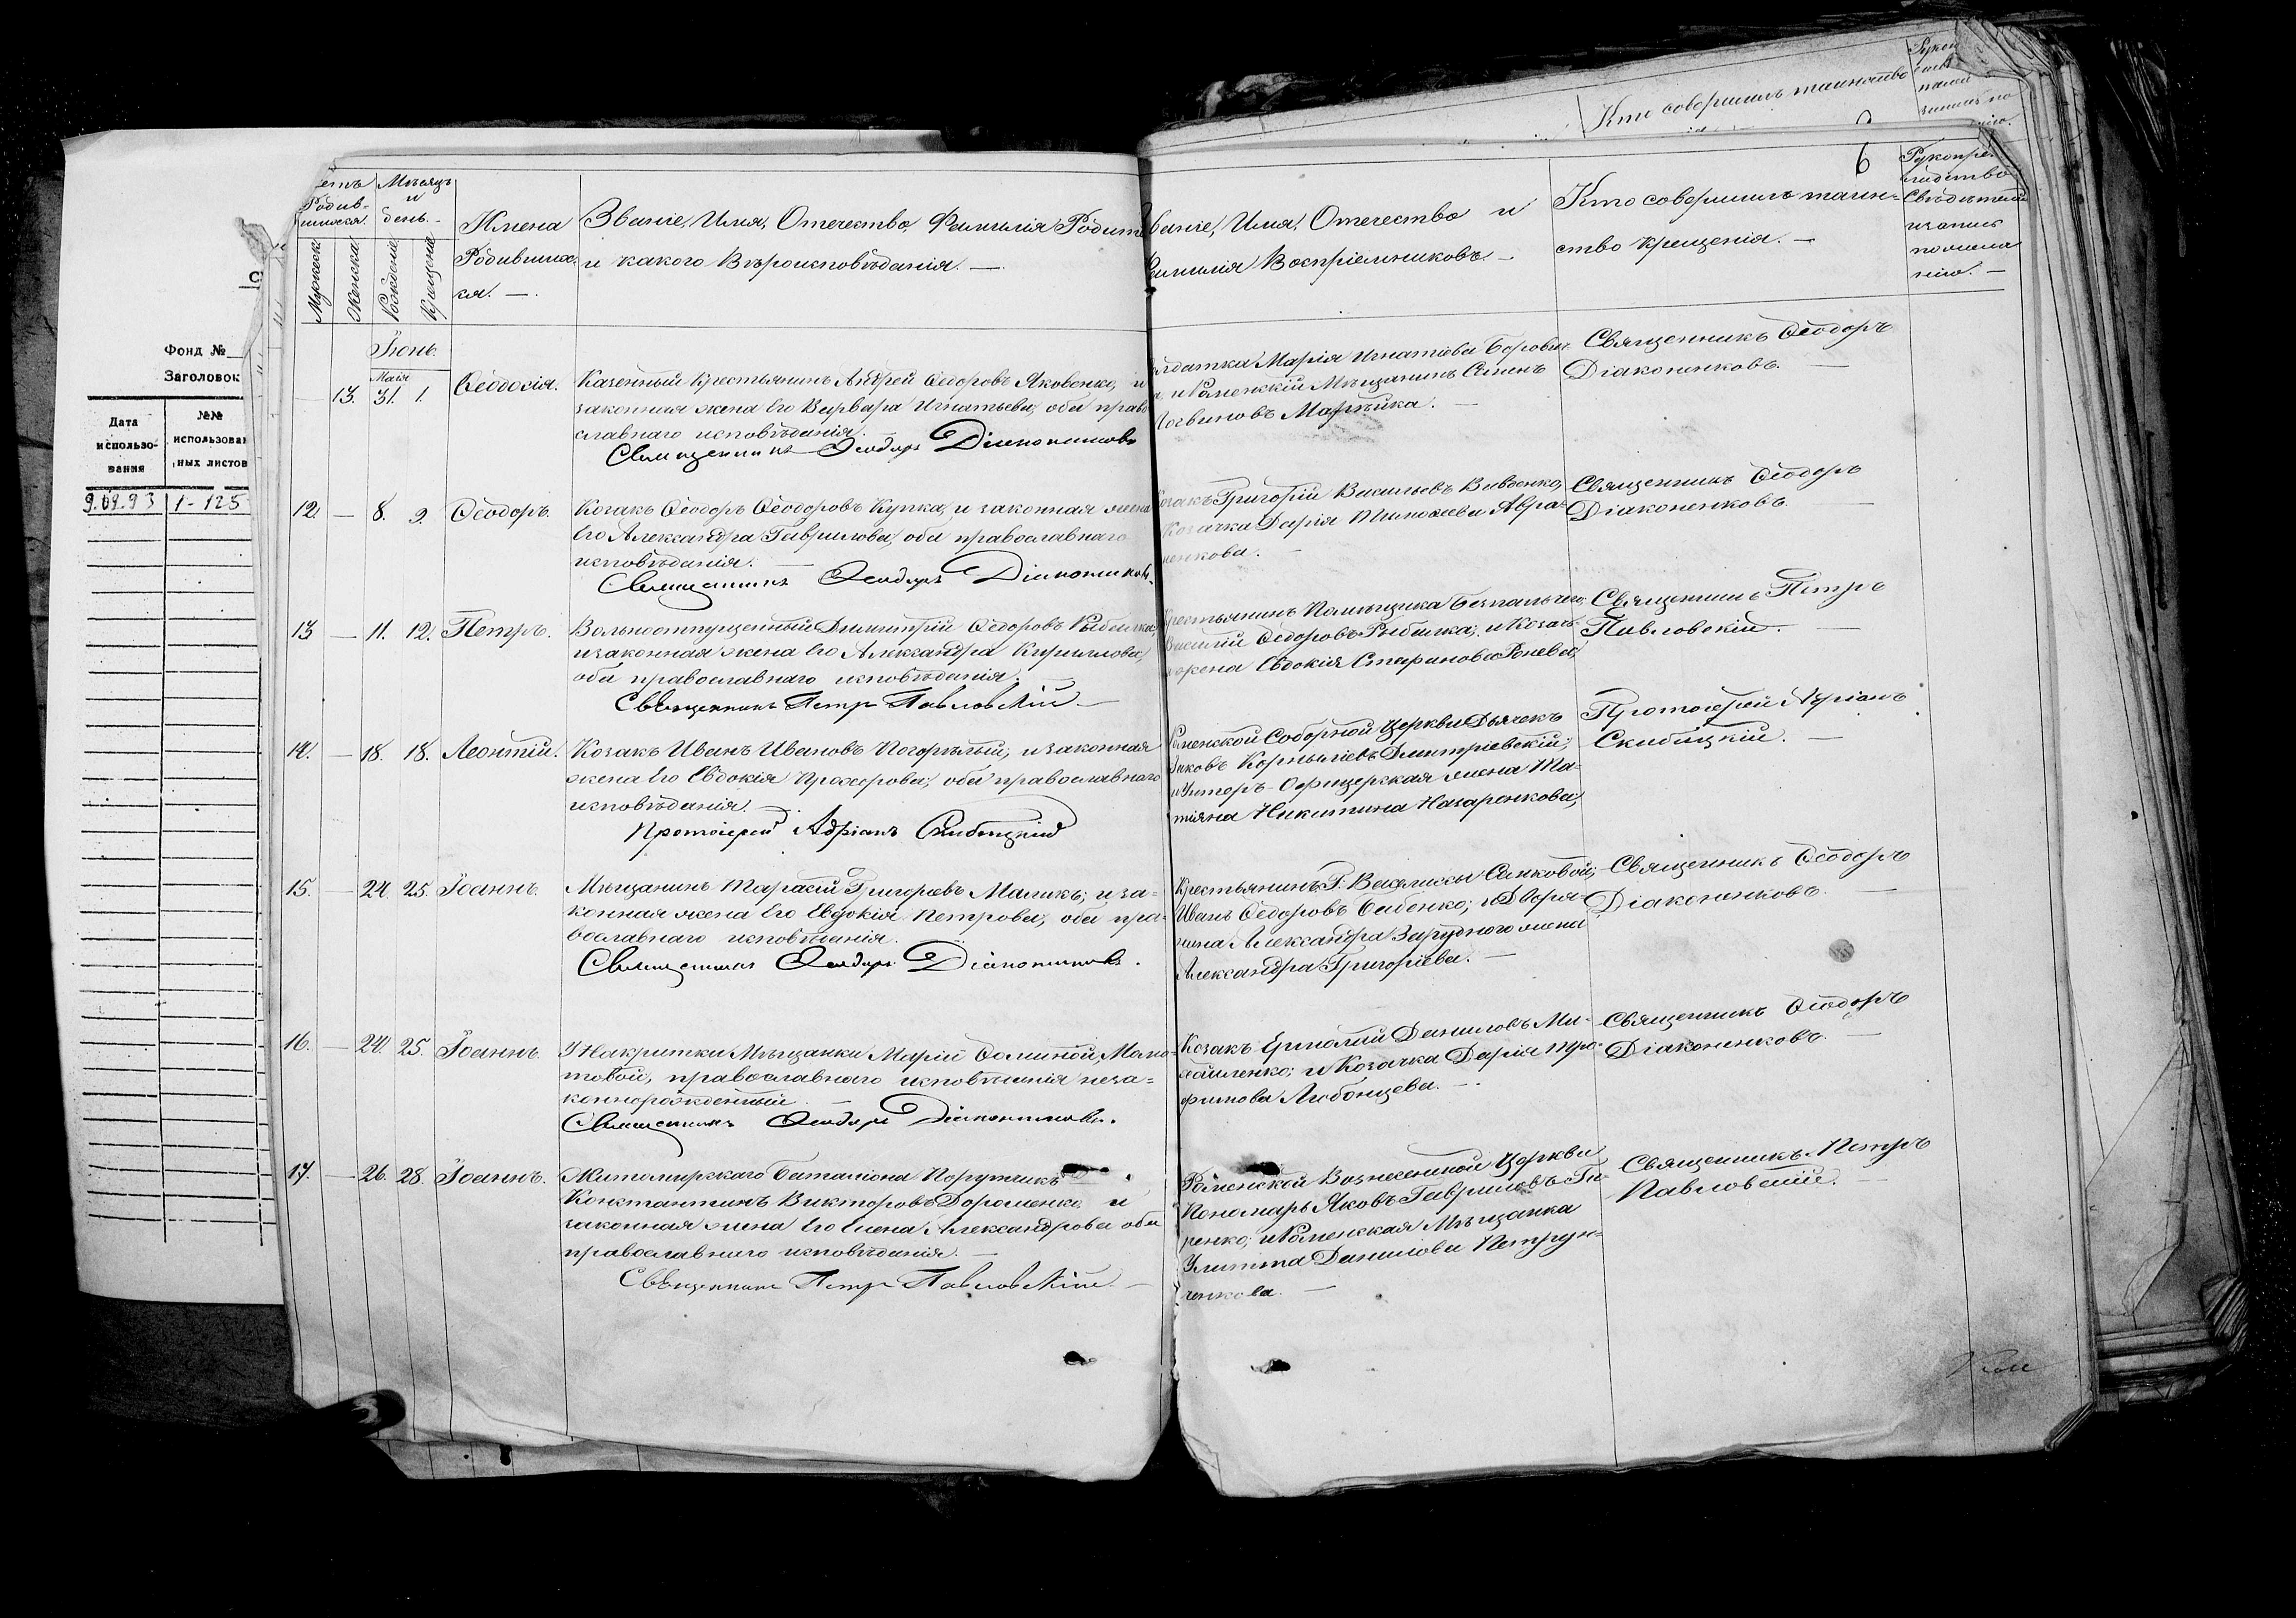 Кто совершилъ таинство
Фонд №
Заголовок
Дата
использо-
вания
№№
использован
ных листов
9.09.93
1-125
6
Родив-
шихся.
Мужеска
Женска
Мѣсяцъ
и
день.
Рожденія
Крещенія
Имена
Родивших-
ся. —
Званіе, Имя, Отечество, Фамилія Родите
и какого Вѣроисповѣданія. —
Званіе, Имя, Отечество и
Фамилія Воспріемниковъ. —
Кто совершилъ таин-
ство крещенія. —
Рукопри
Свѣдѣтелей
записи
по жела
нію. —
Іюнь.
Маія
— 13. 31. 1. Ѳеодосія.
Казенный крестьянинъ Андрей Ѳедоровъ Яковенко, и
законная жена Его Варвара Игнатьева, оба право
славнаго исповѣданія. —
Священникъ Ѳеодоръ Діаконенковъ
Марія Игнатіева
и Роменскій Мѣщанинъ Семенъ
Логвиновъ
Священникъ Ѳеодоръ
Діаконенковъ. —
12. — 8. 9. Ѳеодоръ.
Козакъ Ѳеодоръ Ѳеодоровъ Купка, и законная жена
Его Александра Гаврилова, оба православнаго
исповѣданія. —
Священникъ Ѳеодоръ Діаконенковъ.
Козакъ Григорій Васильевъ Вивденко,
Козачка Дарія Тимоѳеева Авра-
менкова. —
Священникъ Ѳеодоръ
Діаконенковъ. —
13 — 11. 12. Петръ.
Вольноотпущенный Димитрій Ѳедоровъ Рыбалка,
и законная жена Его Александра Кириллова,
оба православнаго исповѣданія. —
Священникъ Петръ Павловскій —
Крестьянинъ Помѣщика Безпальчего,
Василій Ѳедоровъ Рыбалка; и Козач.
жена Евдокія Стефанова
Священникъ Петръ
Павловскій. —
14. — 18. 18. Леонтій.
Козакъ Иванъ Ивановъ Погорѣлый, и законная
жена Его Евдокія Прохорова, оба православнаго
исповѣданія. —
Протоіерей Адріанъ Скибицкій
Роменской Соборной Церкви Дьячекъ
Яковъ Корниліевъ Димитріевскій;
и Унторъ-Офицерская жена Та-
тіяна Никитина Назаренкова,
Протоіерей Адріанъ
Скибицкій. —
15. — 24. 25. Іоаннъ.
Мѣщанинъ Тарасій Григорьевъ Маликъ; и за-
конная жена Его Евдокія Петрова, оба пра-
вославнаго исповѣданія.
Священникъ Ѳеодоръ Діаконенковъ.
Крестьянинъ Г. Василисы Сенковой;
Иванъ Ѳедоровъ Бабенко; и Дворя-
нина Александра Заруднаго жена
Александра Григоріева. —
Священникъ Ѳеодоръ
Діаконенковъ. —
16. — 24. 25. Іоаннъ.
У Накритки Мѣщанки Маріи Ѳоминой, Мамо-
товой, православнаго исповѣданія неза-
коннорожденный. —
Священникъ Ѳеодоръ Діаконенковъ.
Козакъ Ермолай Даниловъ Ми-
хайленко; и Козачка Дарія Тро-
фимова Любонцева. —
Священникъ Ѳеодоръ
Діаконенковъ. —
17. — 26. 28. Іоаннъ.
Житомирскаго Баталіона Порутчикъ
Константинъ Викторовъ Дорошенко и
законная жена Его Елена Александрова оба
православнаго исповѣданія. —
Священникъ Петръ Павловскій —
Роменской Вознесенной Церкви
Пономарь Яковъ Гавриловъ Га-
ренко; и Роменская Мѣщанка
Улитта Данилова Петрун-
ченкова. —
Священникъ Петръ
Павловскій. —